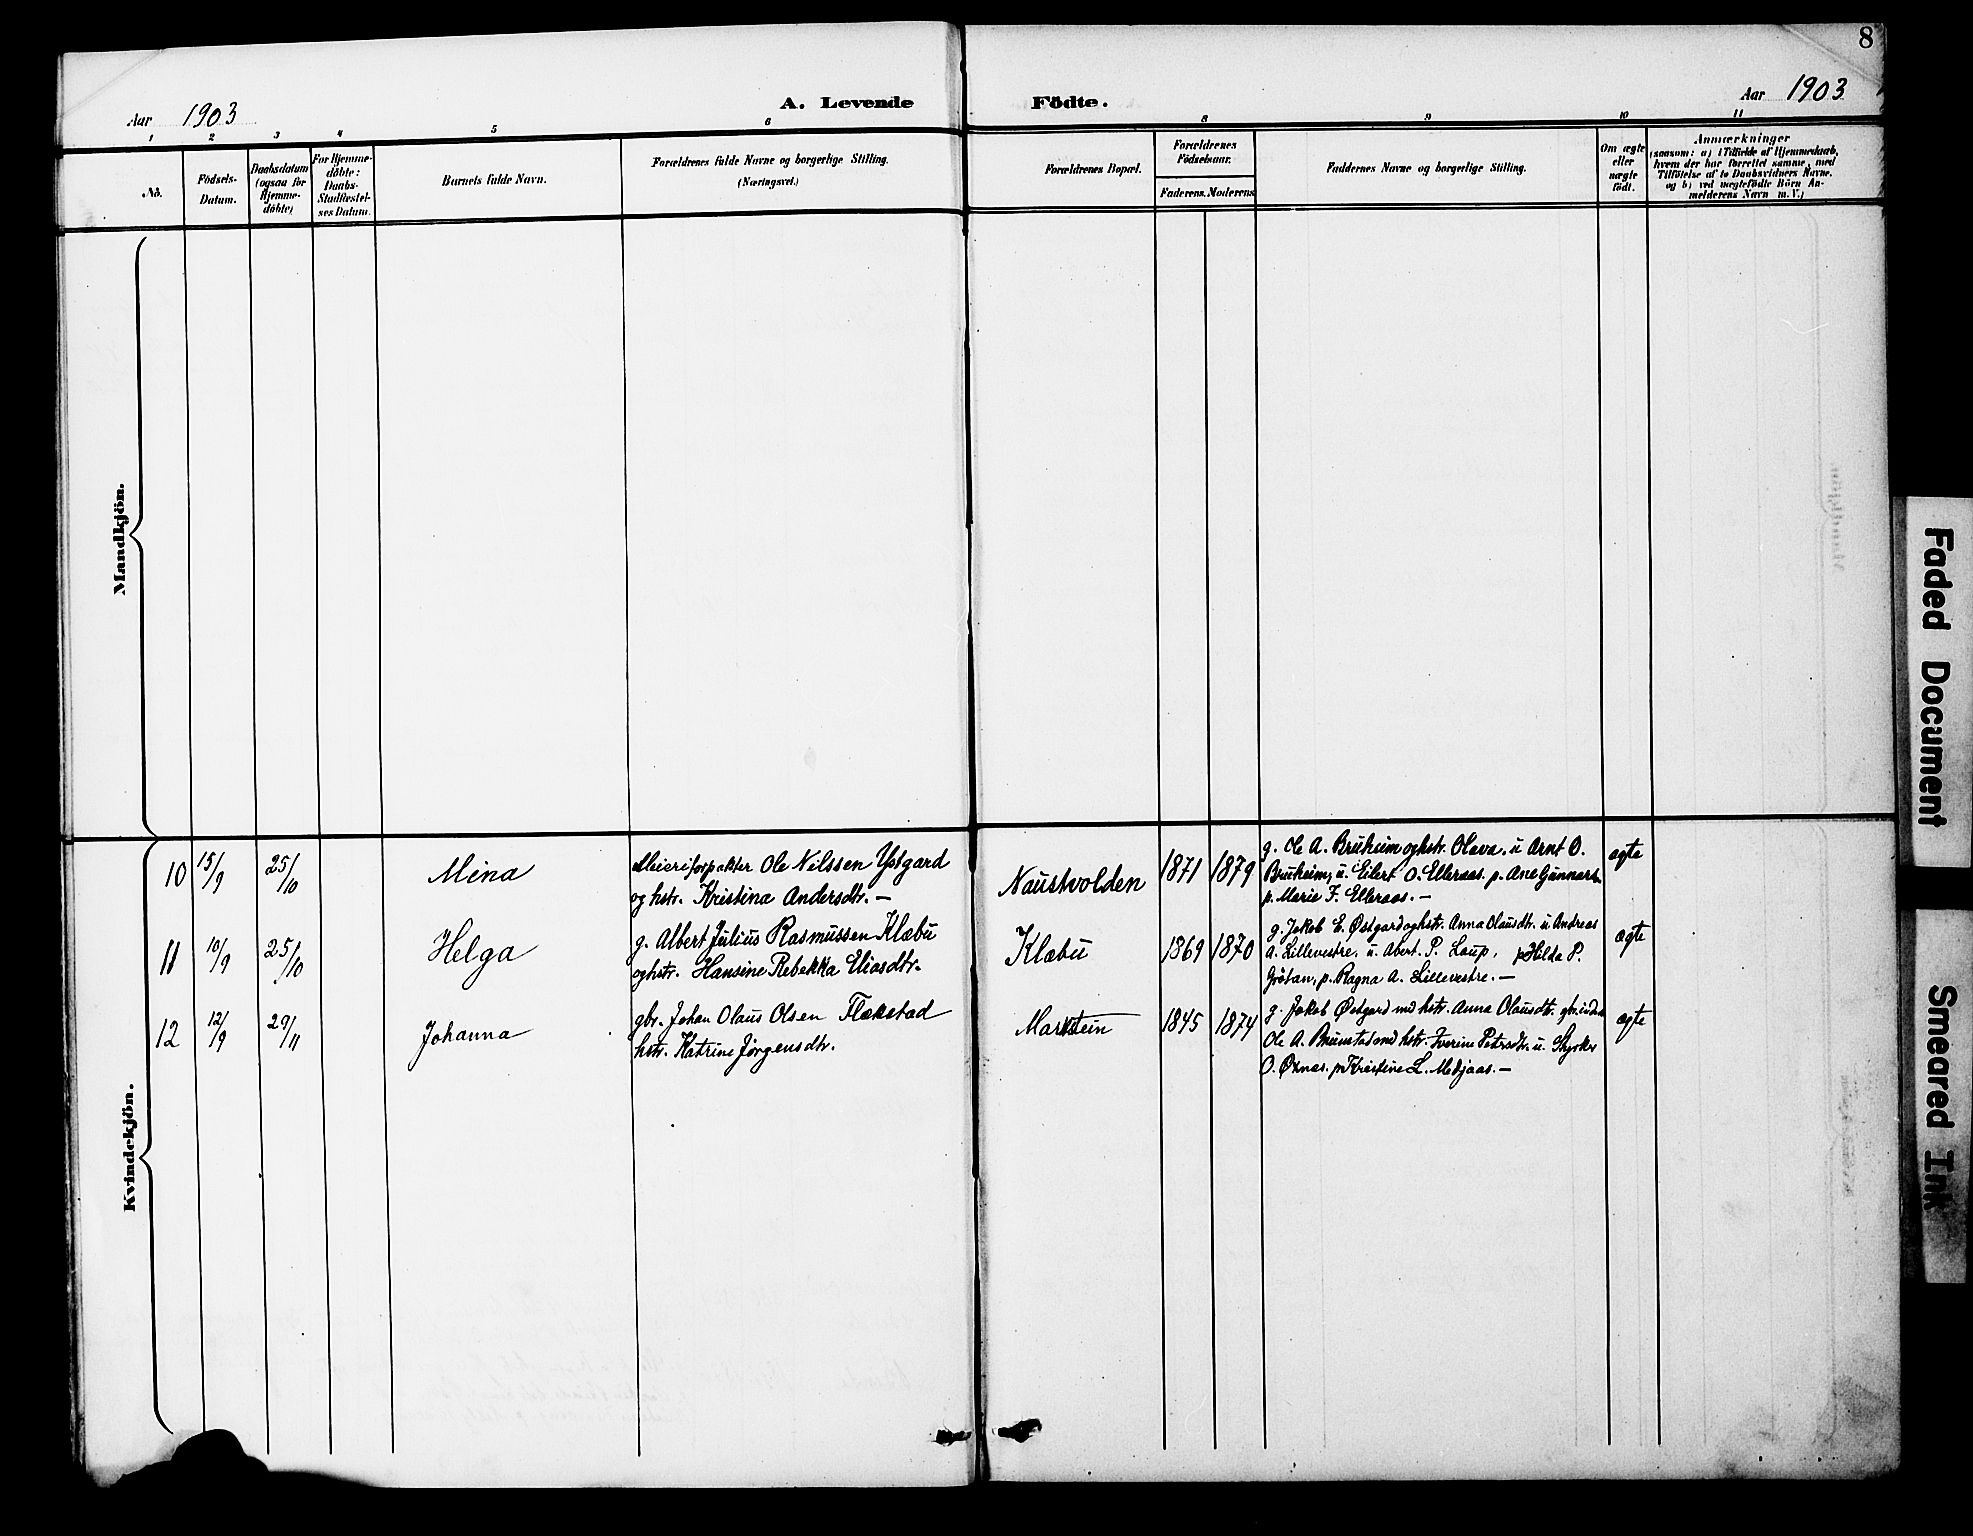 8
Aar 1903
A. Levende
Födte.
Aar 1903
1 2 3 4 5 6 8 9 10 11
No.
Födsels-
Datum.
Daabsdatum
(ogsaa for
Hjemme-
döbte)
For Hjemme-
döbte:
Daabs-
Stadfæstel-
ses Datum.
Barnets fulde Navn.
Forældrenes fulde Navne og borgerlige Stilling.
(Næringsvei.)
Forældrenes Bopæl.
Forældrenes
Födselsaar.
Faderens. Moderens.
Faddernes Navne og borgerlige Stilling.
Om ægte
eller
uægte
født.
Anmærkninger
(saasom: a) i Tilfælde af Hjemmedaab,
hvem der har forrettet samme, med
Tilföielse af to Daabsvidners Navne,
og b) ved uægtefödte Börn An-
melderens Navn m. V.)
Mandkjön.
Kvindekjön.
10 15/9 25/10 Mina
Meieriforpakter Ole Nilssen Ystgard
og hstr. Kristina Andersdtr. —
Naustvolden 1871 1879
g. Ole A. Bruheim og hstr. Olava. u Arnt O.
Bruheim, u. Eilert O. Elleraas. p. Ane Gunnars
p. Marie F. Elleraas. —
ægte
11 10/9 25/10 Helga
g. Albert Julius Rasmussen Klæbu
og hstr. Hansine Rebekka Eliasdtr.
Klæbu 1869 1870
g. Jakob E. Østgard og hstr. Anna Olausdtr. u Andreas
A. Lillevestre. u. Abert. P. Laup, p Hilda P.
Grötan, p. Ragna A. Lillevestre. —
ægte
12 12/9 29/11 Johanna
gbr. Johan Olaus Olsen Flækstad
hstr. Katrine Jørgensdtr.
Markstein 1845 1874
g. Jakob Østgard med hstr. Anna Olausdtr.
Ole A. Brunstad med hstr. Iverine Petersdtr. u.
O. Øxnas. p Kristine L. Medjaas. —
ægte
Faded Document
Smeared Ink